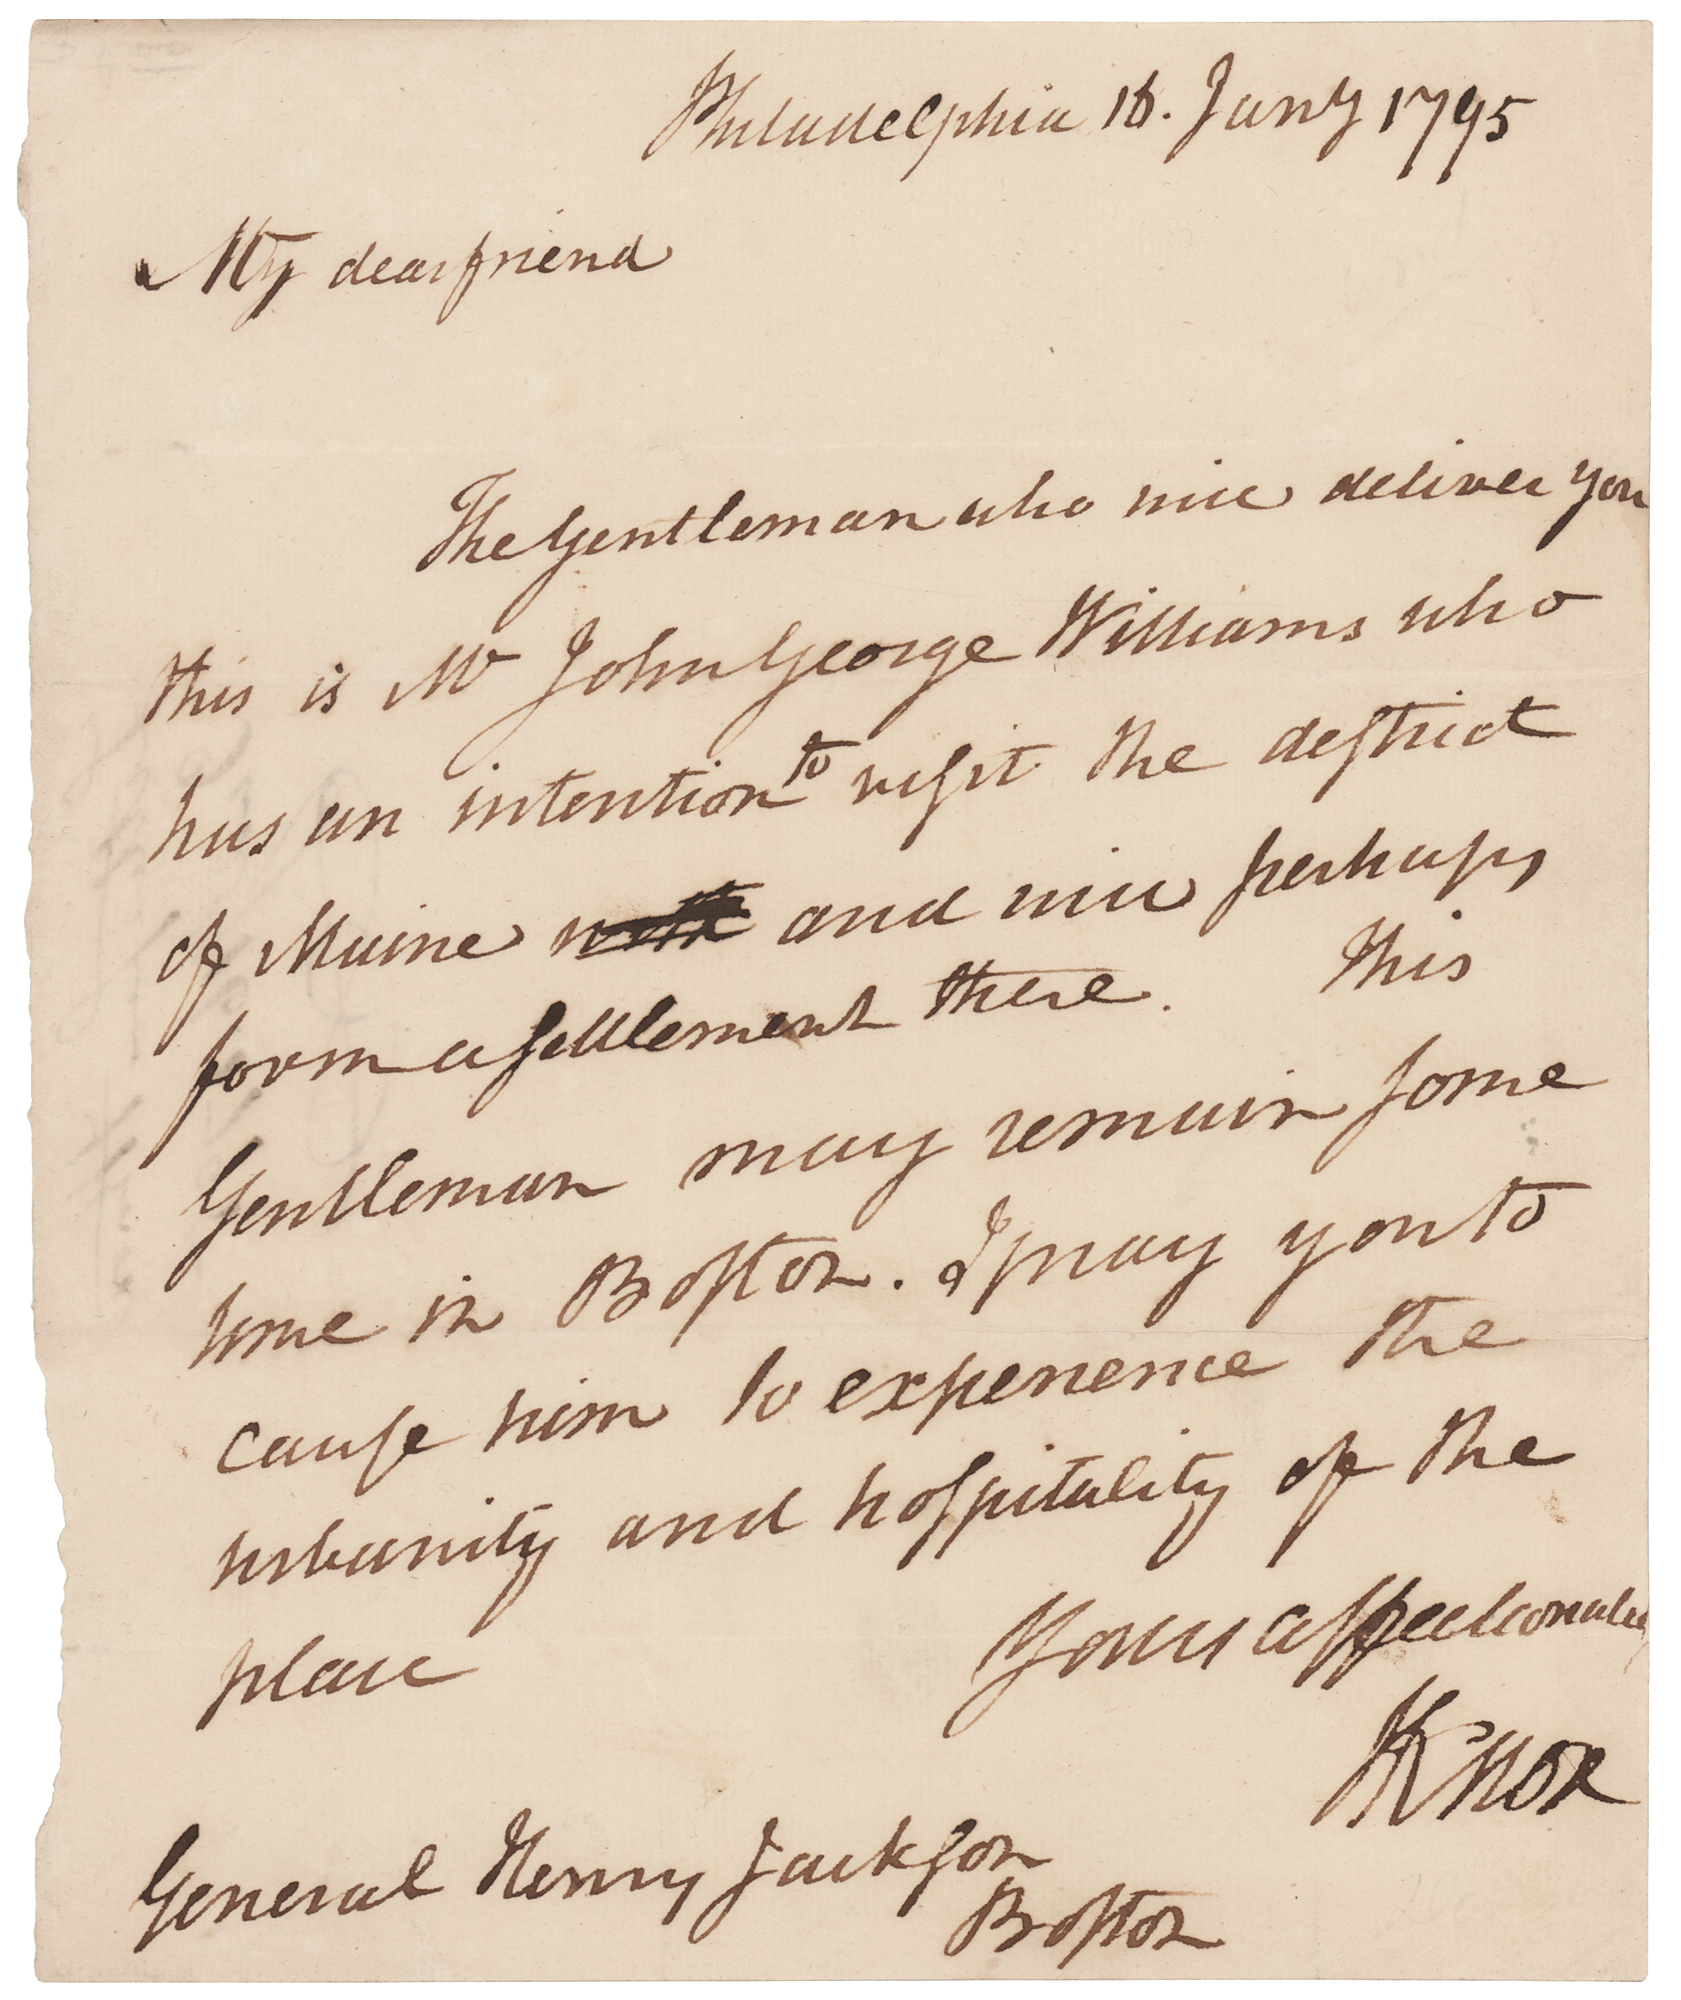 Philadelphia 16. Jany 1795
My dear friend
The Gentleman who will deliver you
this is Mr John George Williams who
has an intention to visit the district
of Maine and will perhaps
form a settlement there. This
Gentleman may remain some
time in Boston. I pray you to
cause him to experience the
urbanity and hospitality of the
place
Yours affectionately
HKnox
General Henry Jackson
Boston